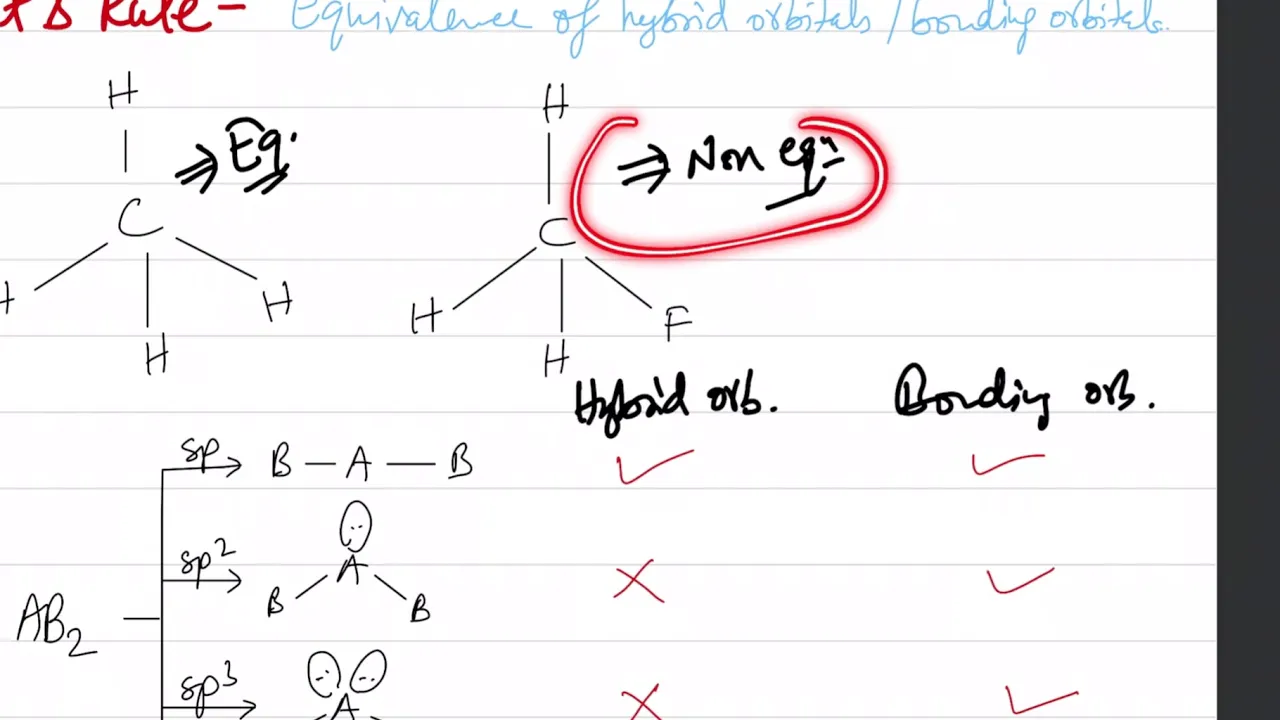 Rule - Equivalence of hybrid orbitals / bonding orbitals.
H H
⇒ Eq. ⇒ Non eq:
C C
H H H F
H H
Hybrid orb. Bonding orb.
sp B — A — B ✓ ✓
sp² A × ✓
B B
AB₂
sp³ A × ✓